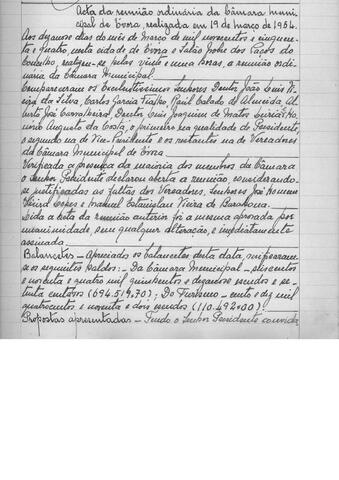 Acta da reunião ordinária da Câmara Muni-
cipal de Évora, realizada em 19 de março de 1954.
Aos dezanove dias do mês de Março de mil novecentos e cinquen-
ta e quatro, nesta cidade de Évora e Salão Nobre dos Paços do
Concelho, realizou-se, pelas vinte e uma horas, a reunião ordi-
nária da Câmara Municipal.
Compareceram os Excelentíssimos Senhores Doutor João Luís
da Silva, Carlos Garcia Raúl Calado de Almeida, Al-
berto José Carvalheira, Doutor Luís Joaquim de Matos
Augusto da Costa, o primeiro na qualidade de Presidente,
o segundo na de Vice-Presidente e os restantes na de Vereadores
da Câmara Municipal de Évora.
Verificada a presença da maioria dos membros da Câmara
o Senhor Presidente declarou aberta a reunião considerando-
se justificadas as faltas dos Vereadores, Senhores José
Lopes e Manuel Estanislau Vieira de Barahona.
Lida a acta da reunião anterior foi a mesma aprovada por
unanimidade, sem qualquer alteração, e imediatamente
assinada.
Balancetes - Apreciados os balancetes desta data, verificaram-
se os seguintes saldos: - Da Câmara Municipal - seiscentos
e noventa e quatro mil quinhentos e dezanove escudos e se-
tenta centavos (694.519,70); Do Turismo - cento e dez mil
quatrocentos e noventa e dois escudos (110.492,00).
Propostas apresentadas - Tendo o Senhor Presidente convida